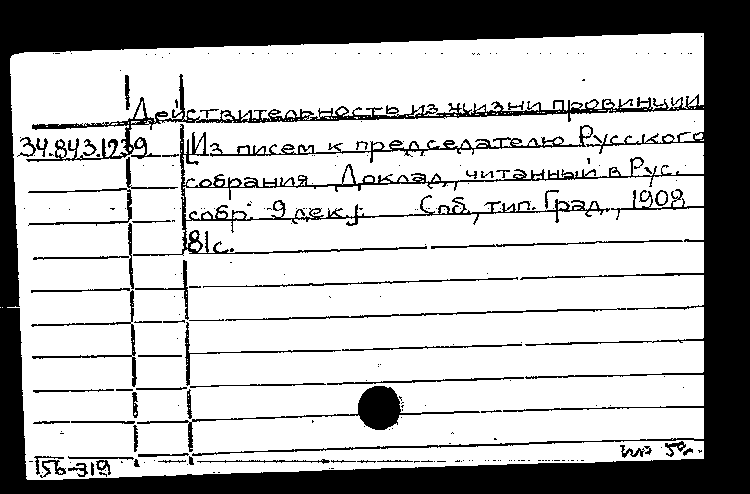 Действительность из жизни провинции
34.84.3.1239. [Из писем к председателю Русского
собрания. Доклад, читанный в Рус.
собр. 9 дек.]. Спб., тип. Град., 1908
81с.
156-319